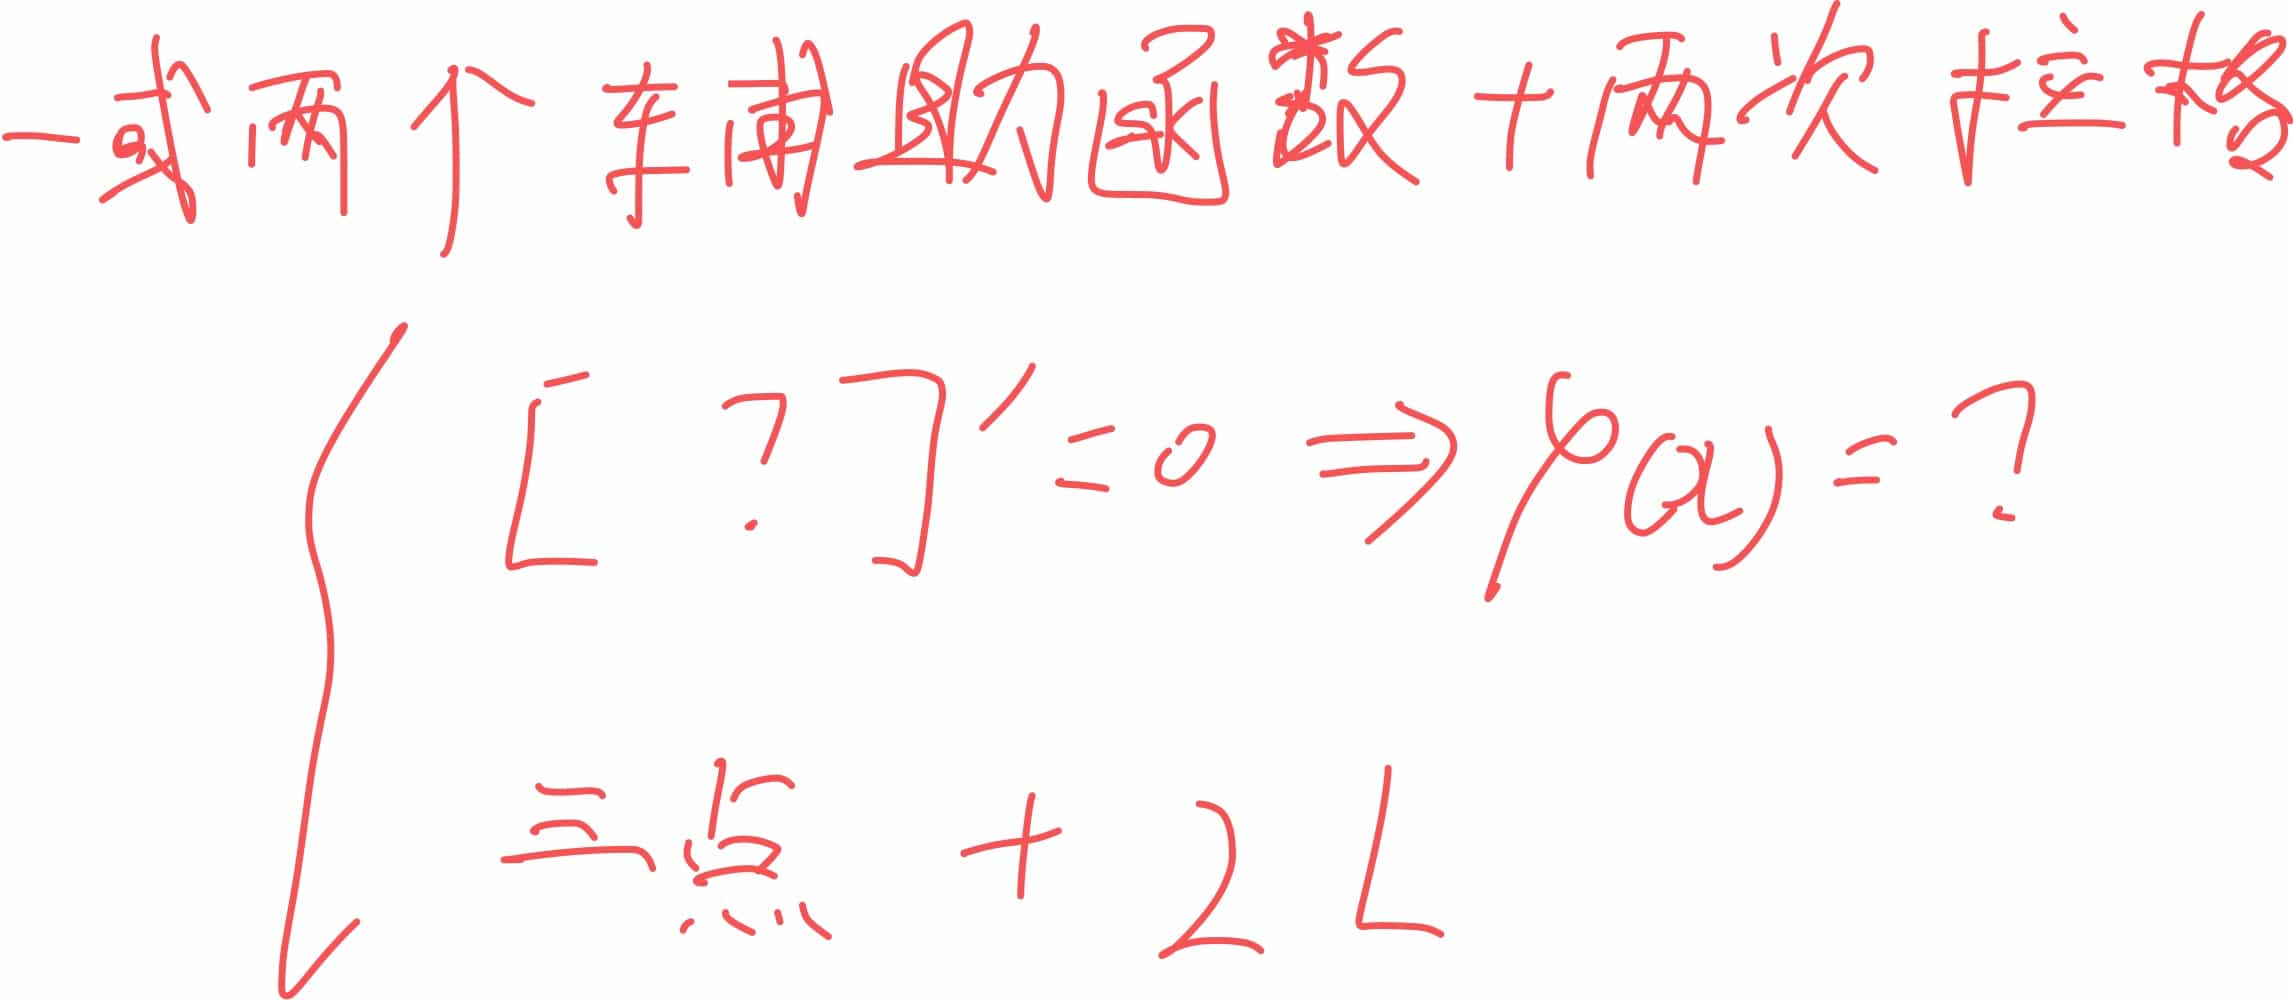 一或两个辅助函数+两次拉格
[ ? ]′=0 ⇒ φ(x)=?
三点 + 2L